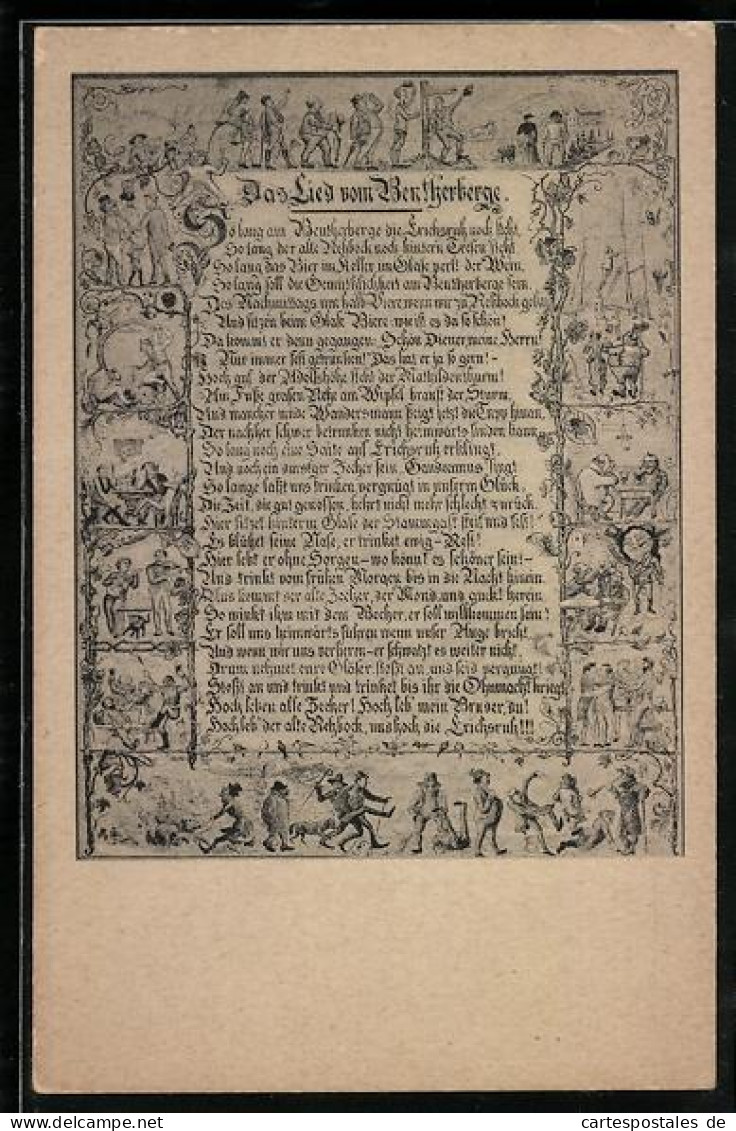 Das Lied vom Bentherberge.
So lang am Bentherberge die Erichsruh noch steht,
So lang der alte Rehbock noch hinterm Tresen steht
So lang das Bier im Keller, im Glase perlt der Wein,
So lang soll die Gemütlichkeit am Bentherberge sein.
Des Nachmittags um halb Viere wenn wir zu Rehbock gehn
Und sitzen beim Glase Biere, wie ist es da so schön!
Da kommt er denn gegangen: Schön Diener, meine Herrn!
Nur immer fest getrunken! Das hat er ja so gern! -
Hoch auf der Adolfshöhe steht der Mathildenthurm!
Am Fuße grasen Rehe am Wipfel braust der Sturm.
Und mancher müde Wandersmann steigt jetzt die Trepp hinan,
Der nachher schwer betrunken nicht heimwärts finden kann.
So lang noch eine Saite auf Erichsruh erklingt.
Und noch ein durstger Zecher sein Gaudeamus singt
So lange laßt uns trinken vergnügt in unserm Glück,
Die Zeit, die gut genossen, kehrt nicht mehr schlecht zurück.
Hier sitzet hinterm Glase der Stammgast steif und fest!
Es blühet seine Nase, er trinket ewig - Rest!
Hier lebt er ohne Sorgen - wo könnt es schöner sein! -
Und trinkt vom frühen Morgen bis in die Nacht hinein.
Und kommt der alte Zecher, der Mond, und guckt herein
So winket ihm mit dem Becher, er soll willkommen sein!
Er soll uns heimwärts führen wenn unser Auge bricht.
Und wenn wir uns verlieren - er schwatzt es weiter nicht.
Drum nehmet eure Gläser, stoßt an, und seid vergnügt!
Stoßt an und trinkt und trinket bis ihr die Ohnmacht kriegt
Hoch leben alle Zecher! Hoch leb' mein Bruder, du!
Hoch leb' der alte Rehbock, und hoch die Erichsruh!!!
cartespostales de